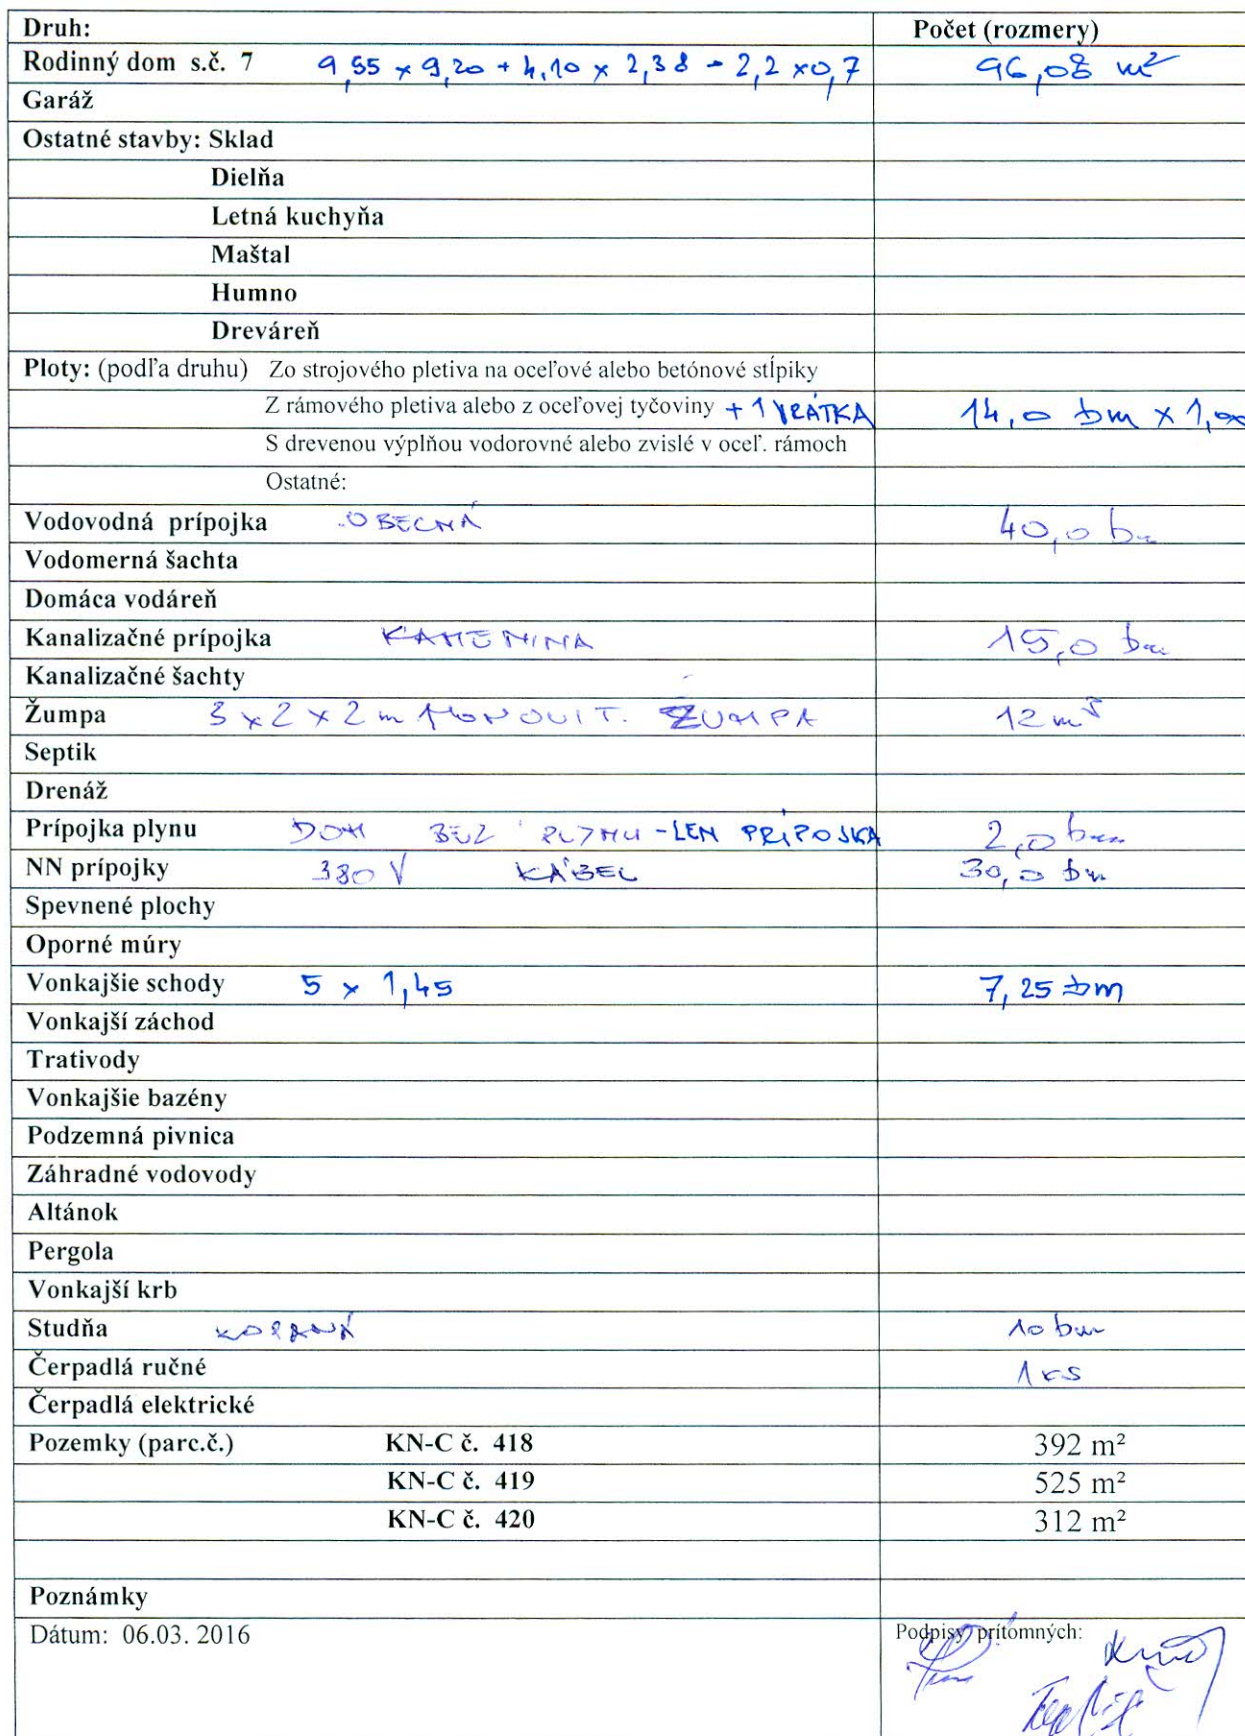 Druh: Počet (rozmery)
Rodinný dom s.č. 7 9,55 x 9,20 + 4,10 x 2,38 - 2,2 x 0,7 96,08 m²
Garáž
Ostatné stavby: Sklad
Dielňa
Letná kuchyňa
Maštal
Humno
Dreváreň
Ploty: (podľa druhu) Zo strojového pletiva na oceľové alebo betónové stĺpiky
Z rámového pletiva alebo z oceľovej tyčoviny + 1 VRÁTKA 14,0 bm x 1,00
S drevenou výplňou vodorovné alebo zvislé v oceľ. rámoch
Ostatné:
Vodovodná prípojka OBECNÁ 40,0 bm
Vodomerná šachta
Domáca vodáreň
Kanalizačné prípojka KAMENINA 15,0 bm
Kanalizačné šachty
Žumpa 3 x 2 x 2 m MONOLIT. ŽUMPA 12 m³
Septik
Drenáž
Prípojka plynu DOM BEZ PLYNU - LEN PRÍPOJKA 2,0 bm
NN prípojky 380 V KÁBEL 30,0 bm
Spevnené plochy
Oporné múry
Vonkajšie schody 5 x 1,45 7,25 bm
Vonkajší záchod
Trativody
Vonkajšie bazény
Podzemná pivnica
Záhradné vodovody
Altánok
Pergola
Vonkajší krb
Studňa KOPANÁ 10 bm
Čerpadlá ručné 1 KS
Čerpadlá elektrické
Pozemky (parc.č.) KN-C č. 418 392 m²
KN-C č. 419 525 m²
KN-C č. 420 312 m²
Poznámky
Dátum: 06.03. 2016 Podpisy prítomných: